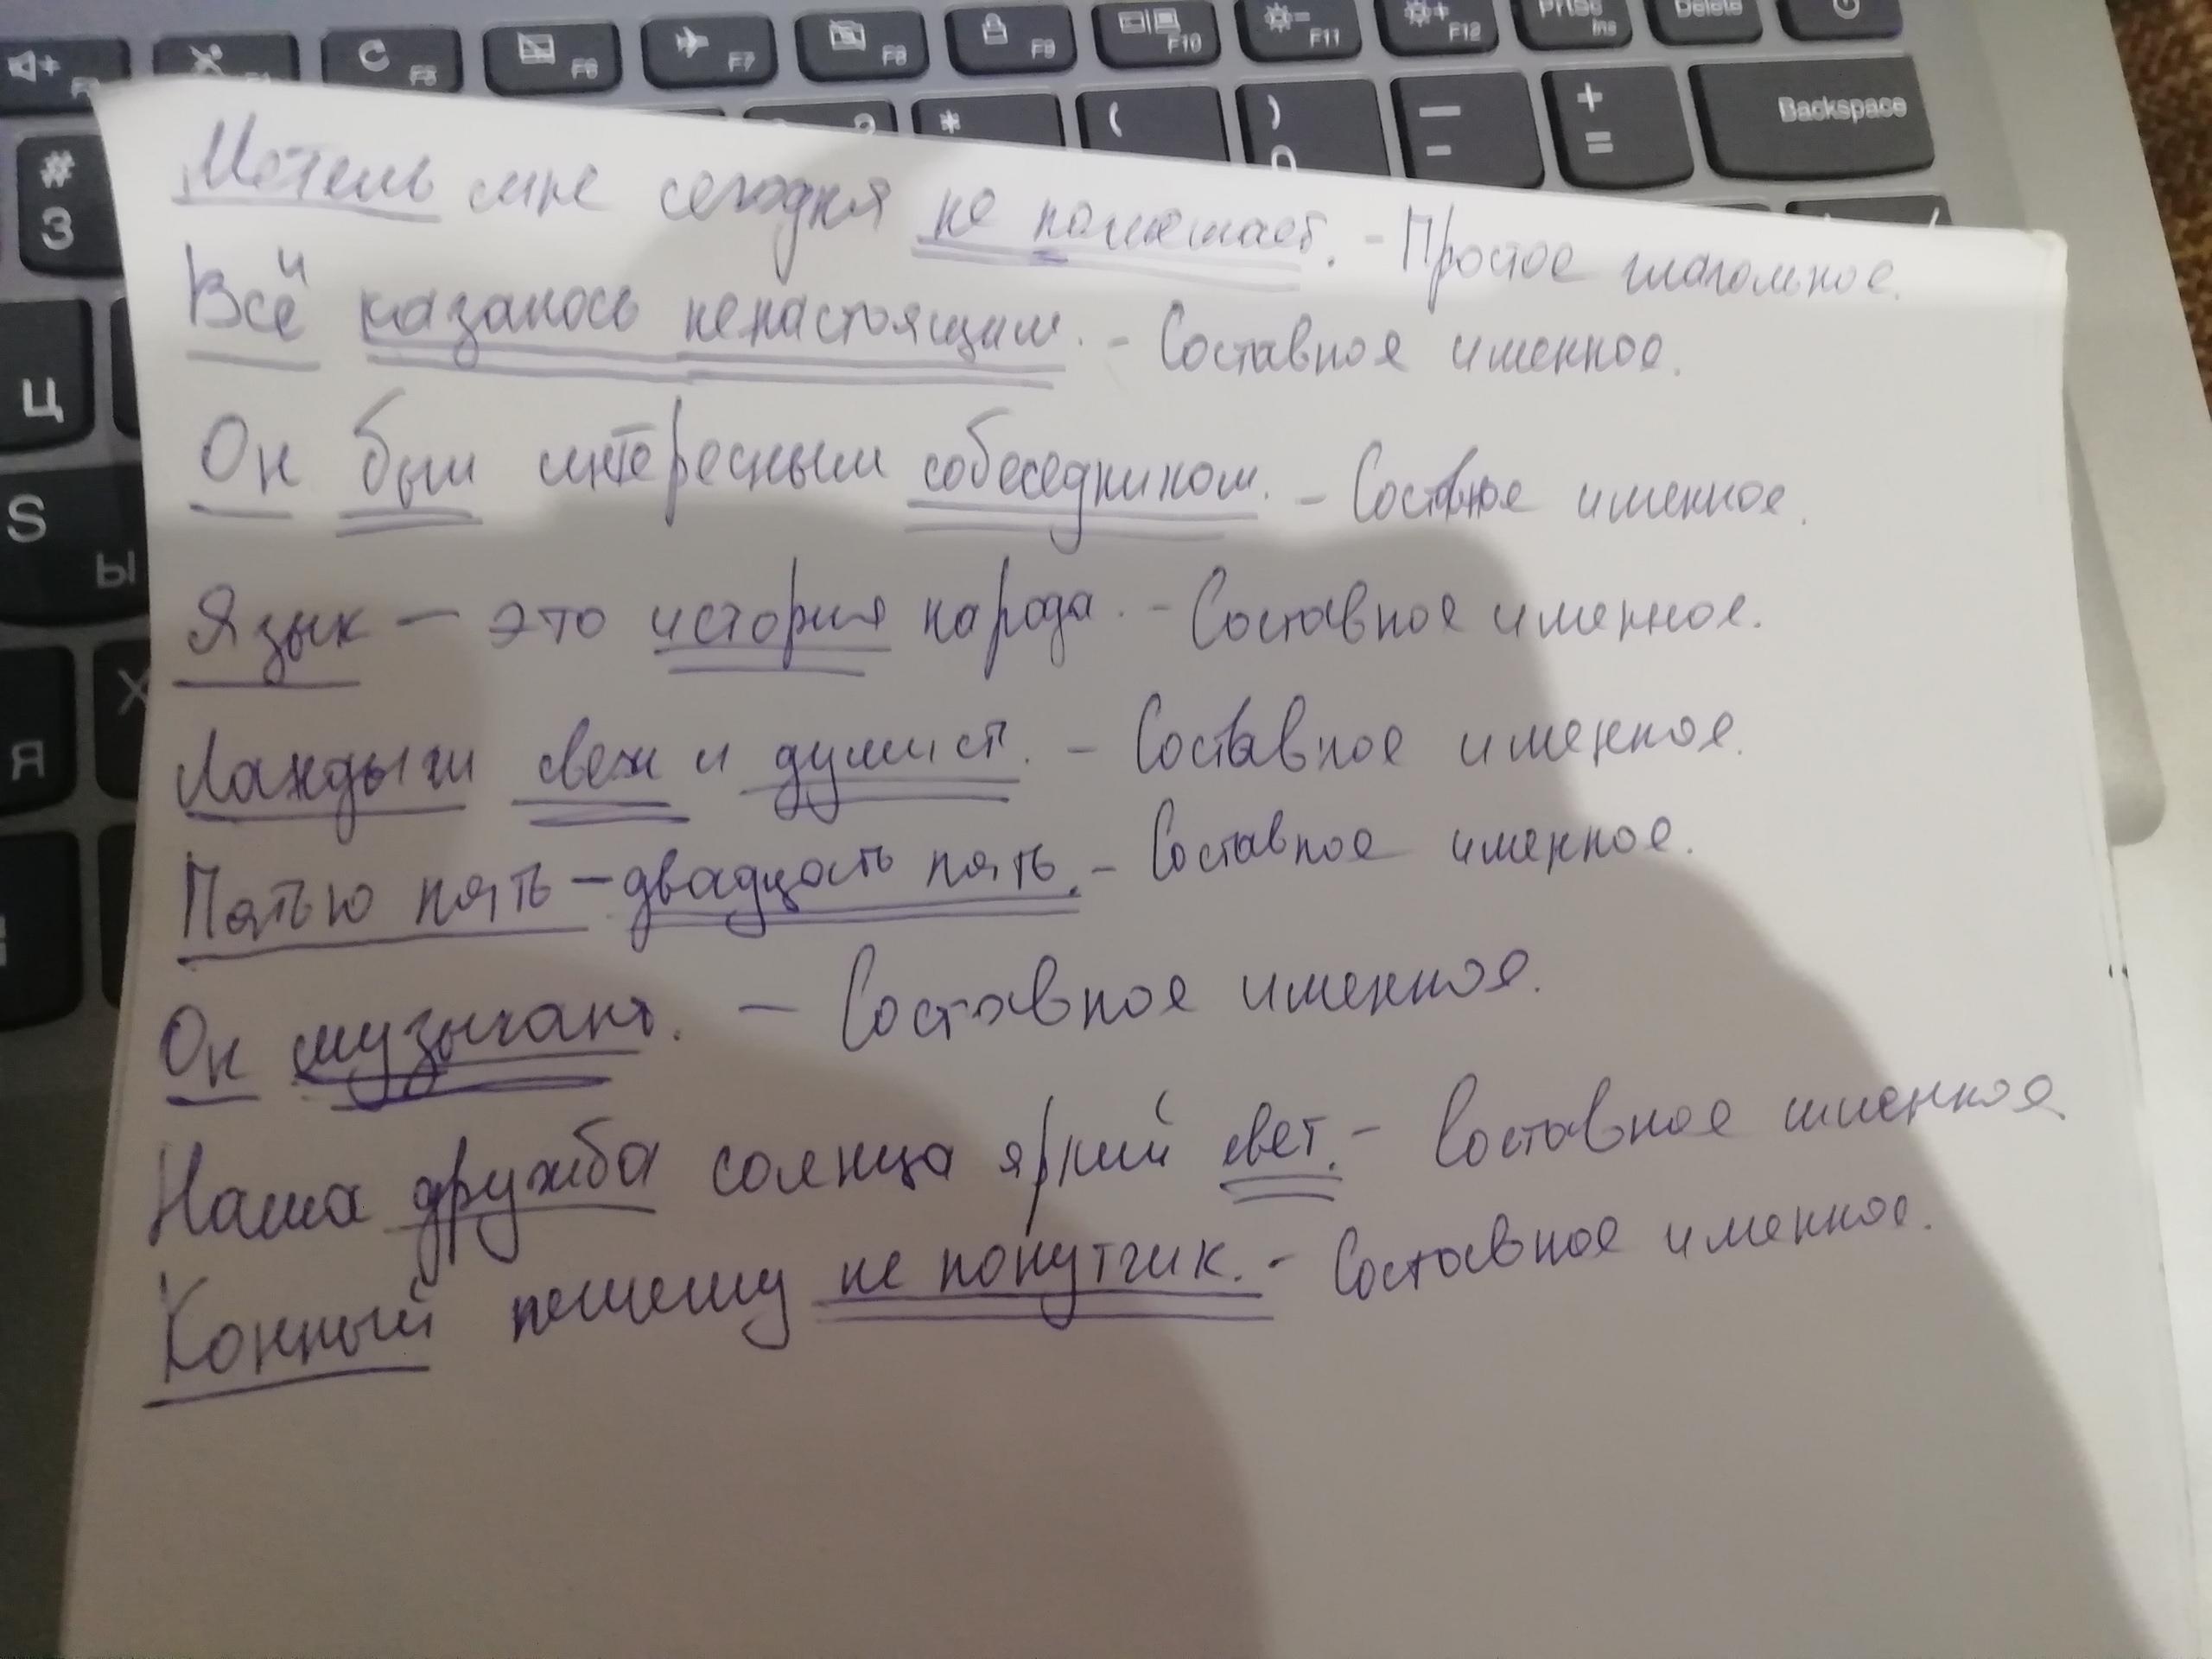 F5 F6 F7 F8 F9 F10 F11 F12 PrtSc Ins Delete
# 3 * ( ) - + = Backspace
Ц
S Ы
Я
Х
Метель мне сегодня не помешает. - Простое глагольное.
Всё казалось ненастоящим. - Составное именное.
Он был интересным собеседником. - Составное именное.
Язык - это история народа. - Составное именное.
Ландыш свеж и душист. - Составное именное.
Пятью пять - двадцать пять. - Составное именное.
Он музыкант. - Составное именное.
Наша дружба солнца яркий свет. - Составное именное
Конный пешему не попутчик. - Составное именное.